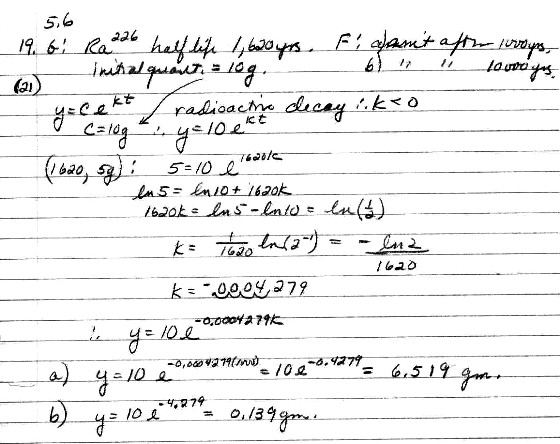 5.6
19. G: Ra²²⁶ half life 1,620 yrs. F: a) amt after 1000 yrs.
initial quant. = 10g. b) " " 10000 yrs.
(21)
y = Ce^kt radioactive decay ∴ k < 0
C = 10g ∴ y = 10e^kt
(1620, 5g): 5 = 10 e^1620k
ln 5 = ln 10 + 1620k
1620k = ln 5 - ln 10 = ln(1/2)
k = 1/1620 ln(2⁻¹) = - ln 2/1620
k = -.0004,279
∴ y = 10e^-0.0004279t
a) y = 10 e^-0.0004279(1000) = 10e^-0.4279 = 6.519 gm.
b) y = 10e^-4.279 = 0.139 gm.